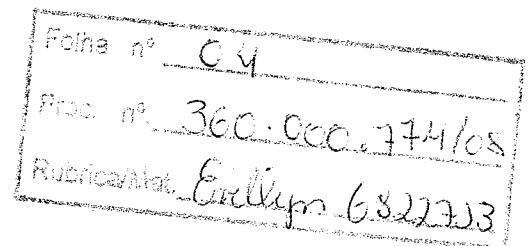 Folha nº 04
Proc. nº. 360.000.774/08
Rubrica/Mat. Evellyn 6822713